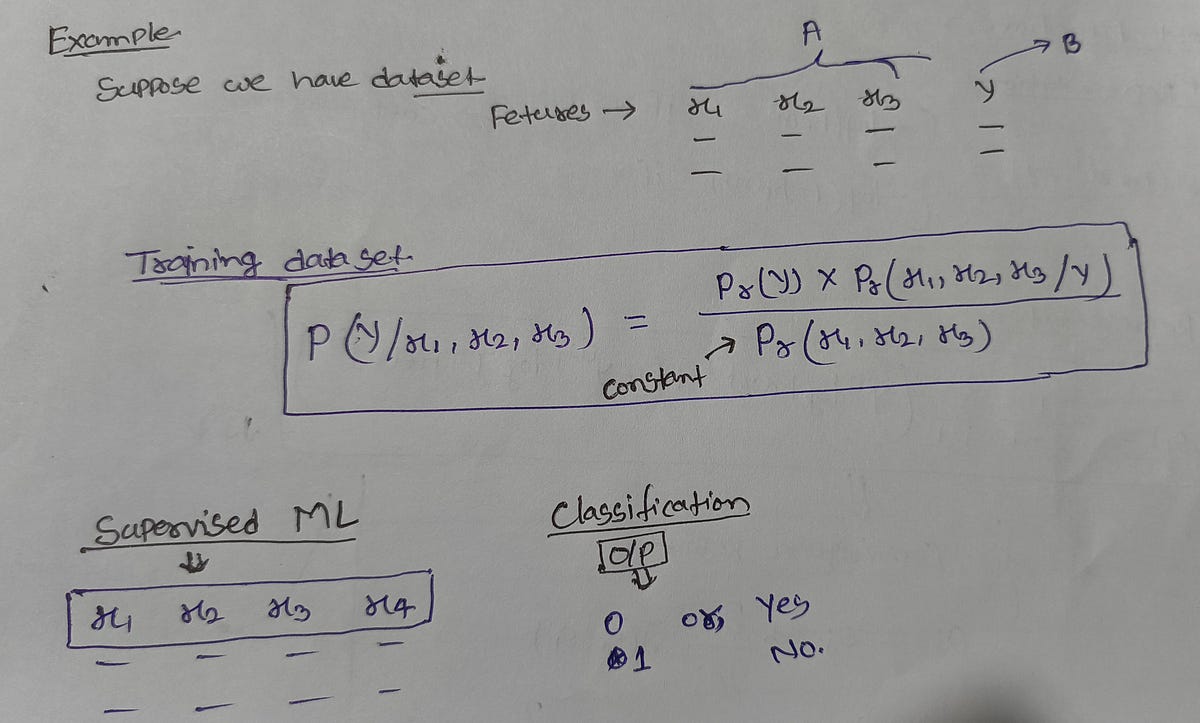 Example
Suppose we have dataset
A
B
Fetures → x1 x2 x3 y
Training data set
P(Y/x1, x2, x3) = Pr(y) × Pr(x1, x2, x3/y)
Pr(x1, x2, x3)
constant
Supervised ML
x1 x2 x3 x4
Classification
O/P
0 or, Yes
1 No.